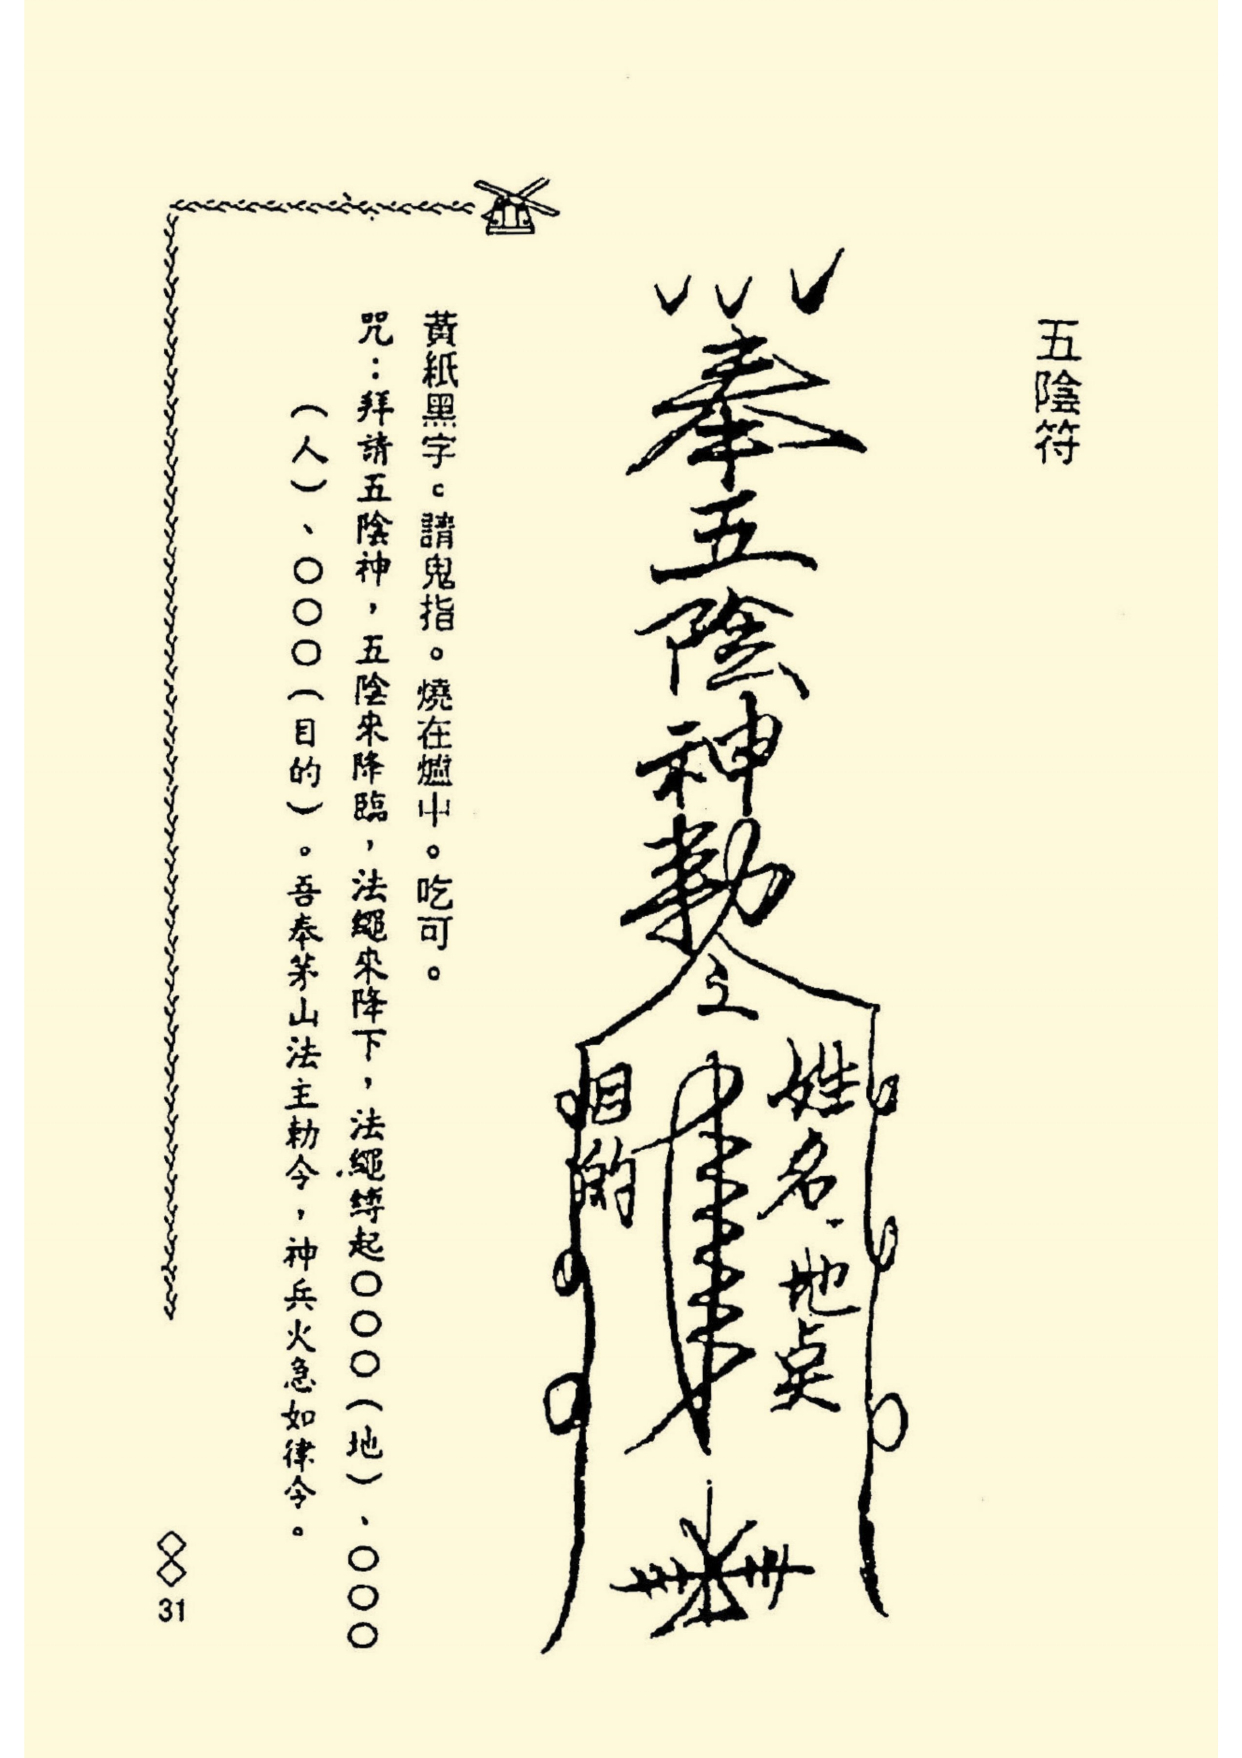 五陰符
奉五陰神勅
姓名、地点
目的
黃紙黑字。請鬼指。燒在爐中。吃可。
咒：拜請五陰神，五陰來降臨，法繩來降下，法繩縛起○○○（地）、○○○
（人）、○○○（目的）。吾奉茅山法主勅令，神兵火急如律令。
31